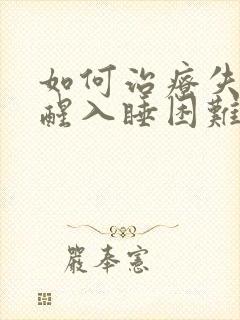 如何治疗失
醒入睡困難
嚴奉憲